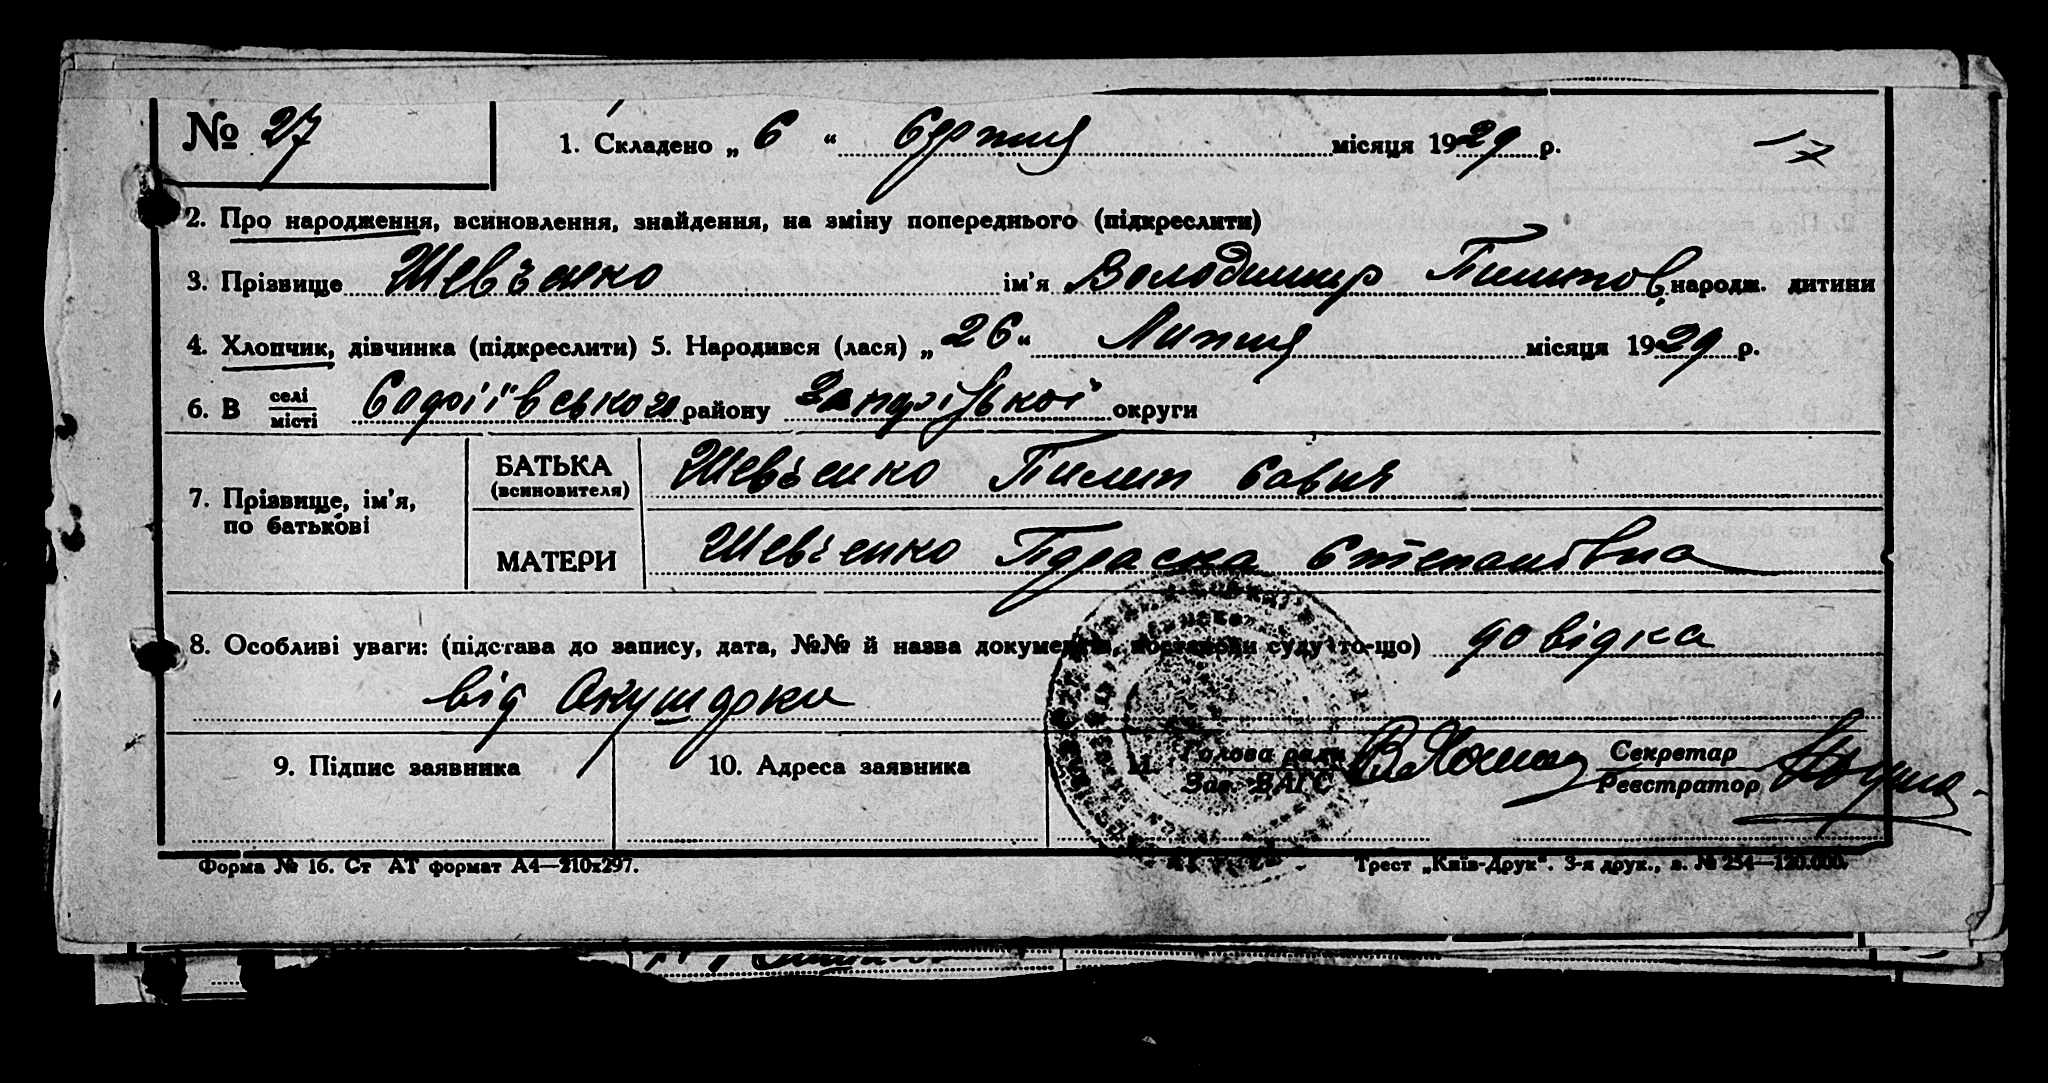 № 27
1. Складено „ 6 “ Серпня місяця 1929 р.
17
2. Про народження, всиновлення, знайдення, на зміну попереднього (підкреслити)
3. Прізвище Шевченко ім’я Володимир народж. дитини
4. Хлопчик, дівчинка (підкреслити) 5. Народився (лася) „ 26 “ Липня місяця 1929 р.
6. В селі місті Софіївського району Запорізької округи
7. Прізвище, ім’я, по батькові
БАТЬКА (всиновителя) Шевченко Пилип Савич
МАТЕРИ Шевченко Параска Степановна
8. Особливі уваги: (підстава до запису, дата, №№ й назва документів, постанови суду то-що) довідка
від Акушерки
9. Підпис заявника
10. Адреса заявника
11. Голова ради Секретар
Зав. ВАГС Реєстратор
Форма № 16. Ст АТ формат А4—210х297.
Трест „Київ-Друк“. 3-я друк., з. № 254—120.000.